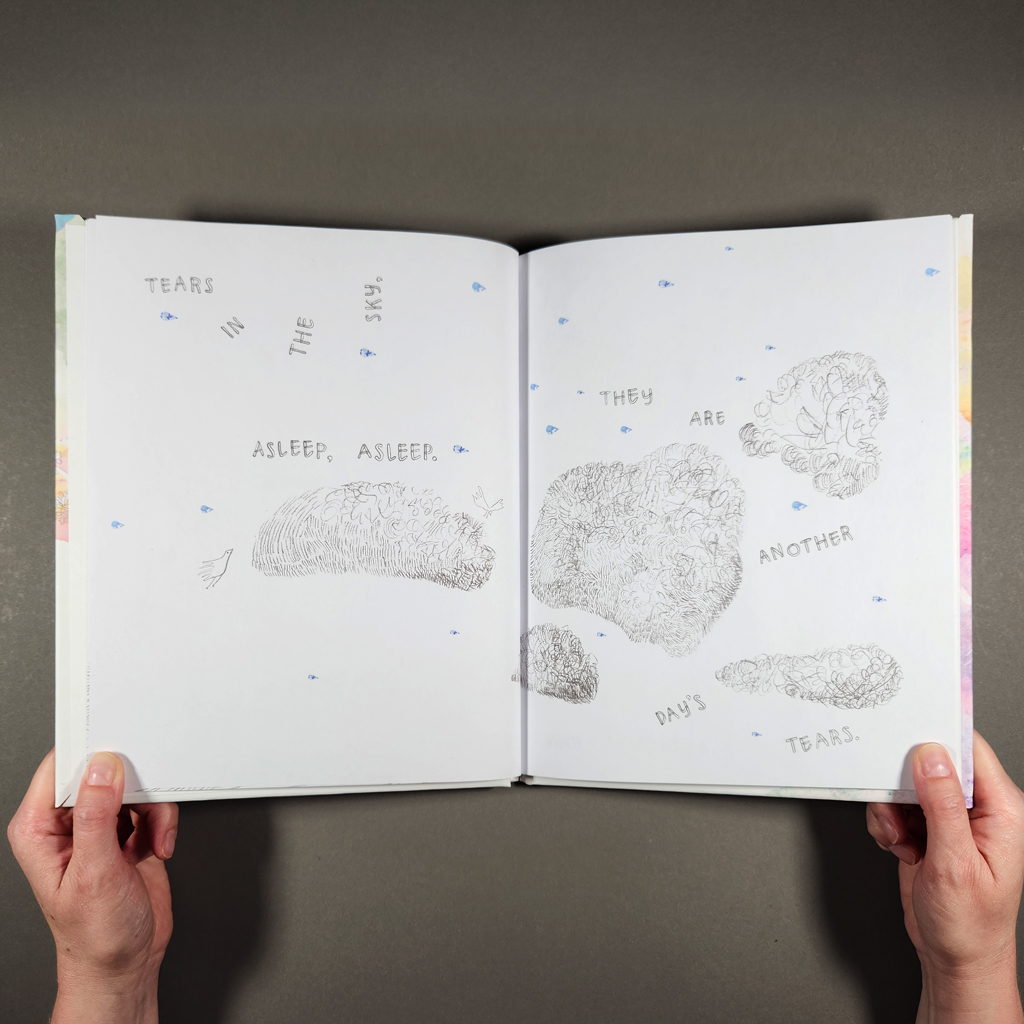 TEARS
IN
THE
SKY,
ASLEEP, ASLEEP.
THEY
ARE
ANOTHER
DAY'S
TEARS.